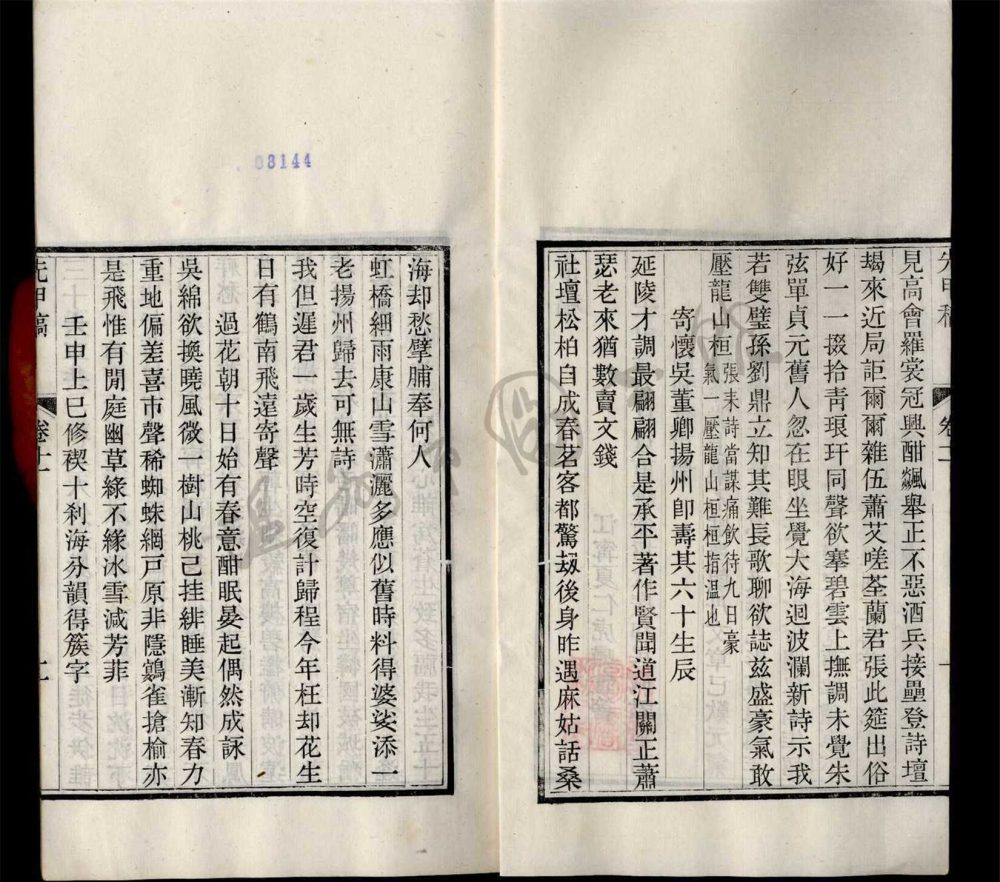 見高會羅裳冠興酣飆舉正不惡酒兵接壘登詩壇
朅來近局詎爾爾雜伍蕭艾嗟荃蘭君張此筵出俗
好一一掇拾青琅玕同聲欲搴碧雲上撫調未覺朱
弦單貞元舊人忽在眼坐覺大海迴波瀾新詩示我
若雙璧孫劉鼎立知其難長歌聊欲誌茲盛豪氣敢
壓龍山桓張耒詩當謀痛飲待九日豪
氣一壓龍山桓桓指溫也
寄懷吳董卿揚州卽壽其六十生辰
延陵才調最翩翩合是承平著作賢聞道江關正蕭
瑟老來猶數賣文錢
社壇松柏自成春茗客都驚刼後身昨遇麻姑話桑
海却愁擘脯奉何人
虹橋細雨康山雪瀟灑多應似舊時料得婆娑添一
老揚州歸去可無詩
我但遲君一歲生芳時空復計歸程今年枉却花生
日有鶴南飛遠寄聲
過花朝十日始有春意酣眠晏起偶然成詠
吳綿欲換曉風微一樹山桃已挂緋睡美漸知春力
重地偏差喜市聲稀蜘蛛網戶原非隱鷃雀搶榆亦
是飛惟有閒庭幽草綠不緣冰雪減芳菲
壬申上巳修禊十刹海分韻得簇字
先甲稿
卷十一
03144